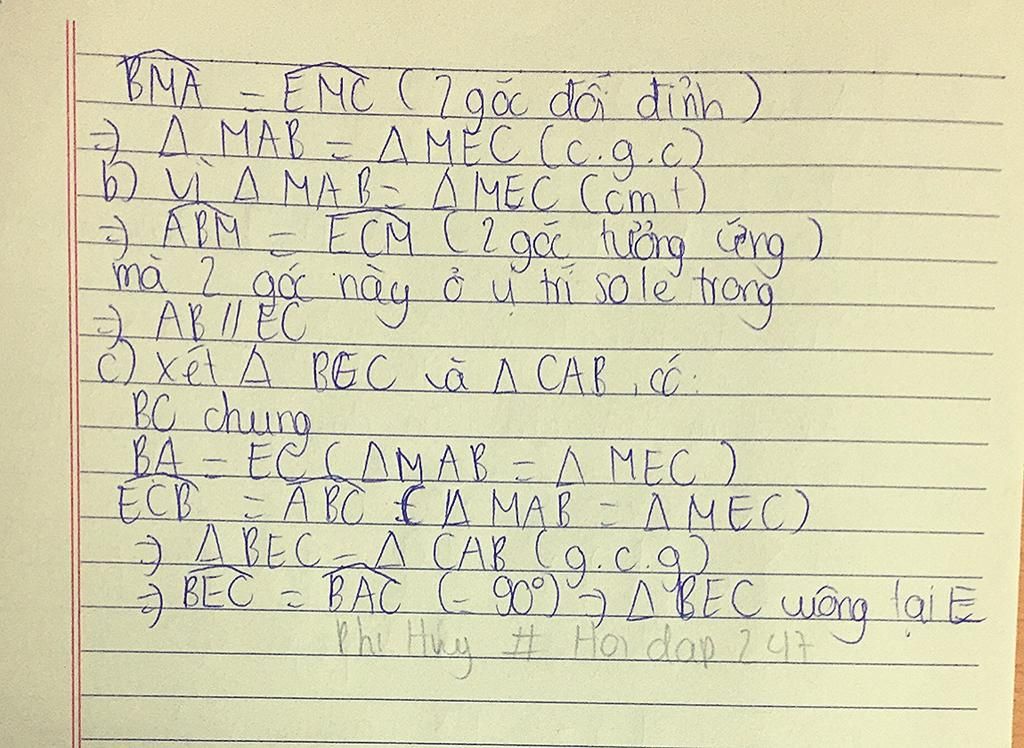 BMA = EMC (2 góc đối đỉnh)
=> Δ MAB = Δ MEC (c.g.c)
b) Vì Δ MAB = Δ MEC (cmt)
=> ABM = ECM (2 góc tưởng ứng)
mà 2 góc này ở vị trí so le trong
=> AB // EC
c) Xét Δ BEC và Δ CAB, có:
BC chung
BA = EC (Δ MAB = Δ MEC)
ECB = ABC (Δ MAB = Δ MEC)
=> Δ BEC = Δ CAB (g.c.g)
=> BEC = BAC (= 90°) => Δ BEC vuông tại E
Phi Huy # Hoidap247